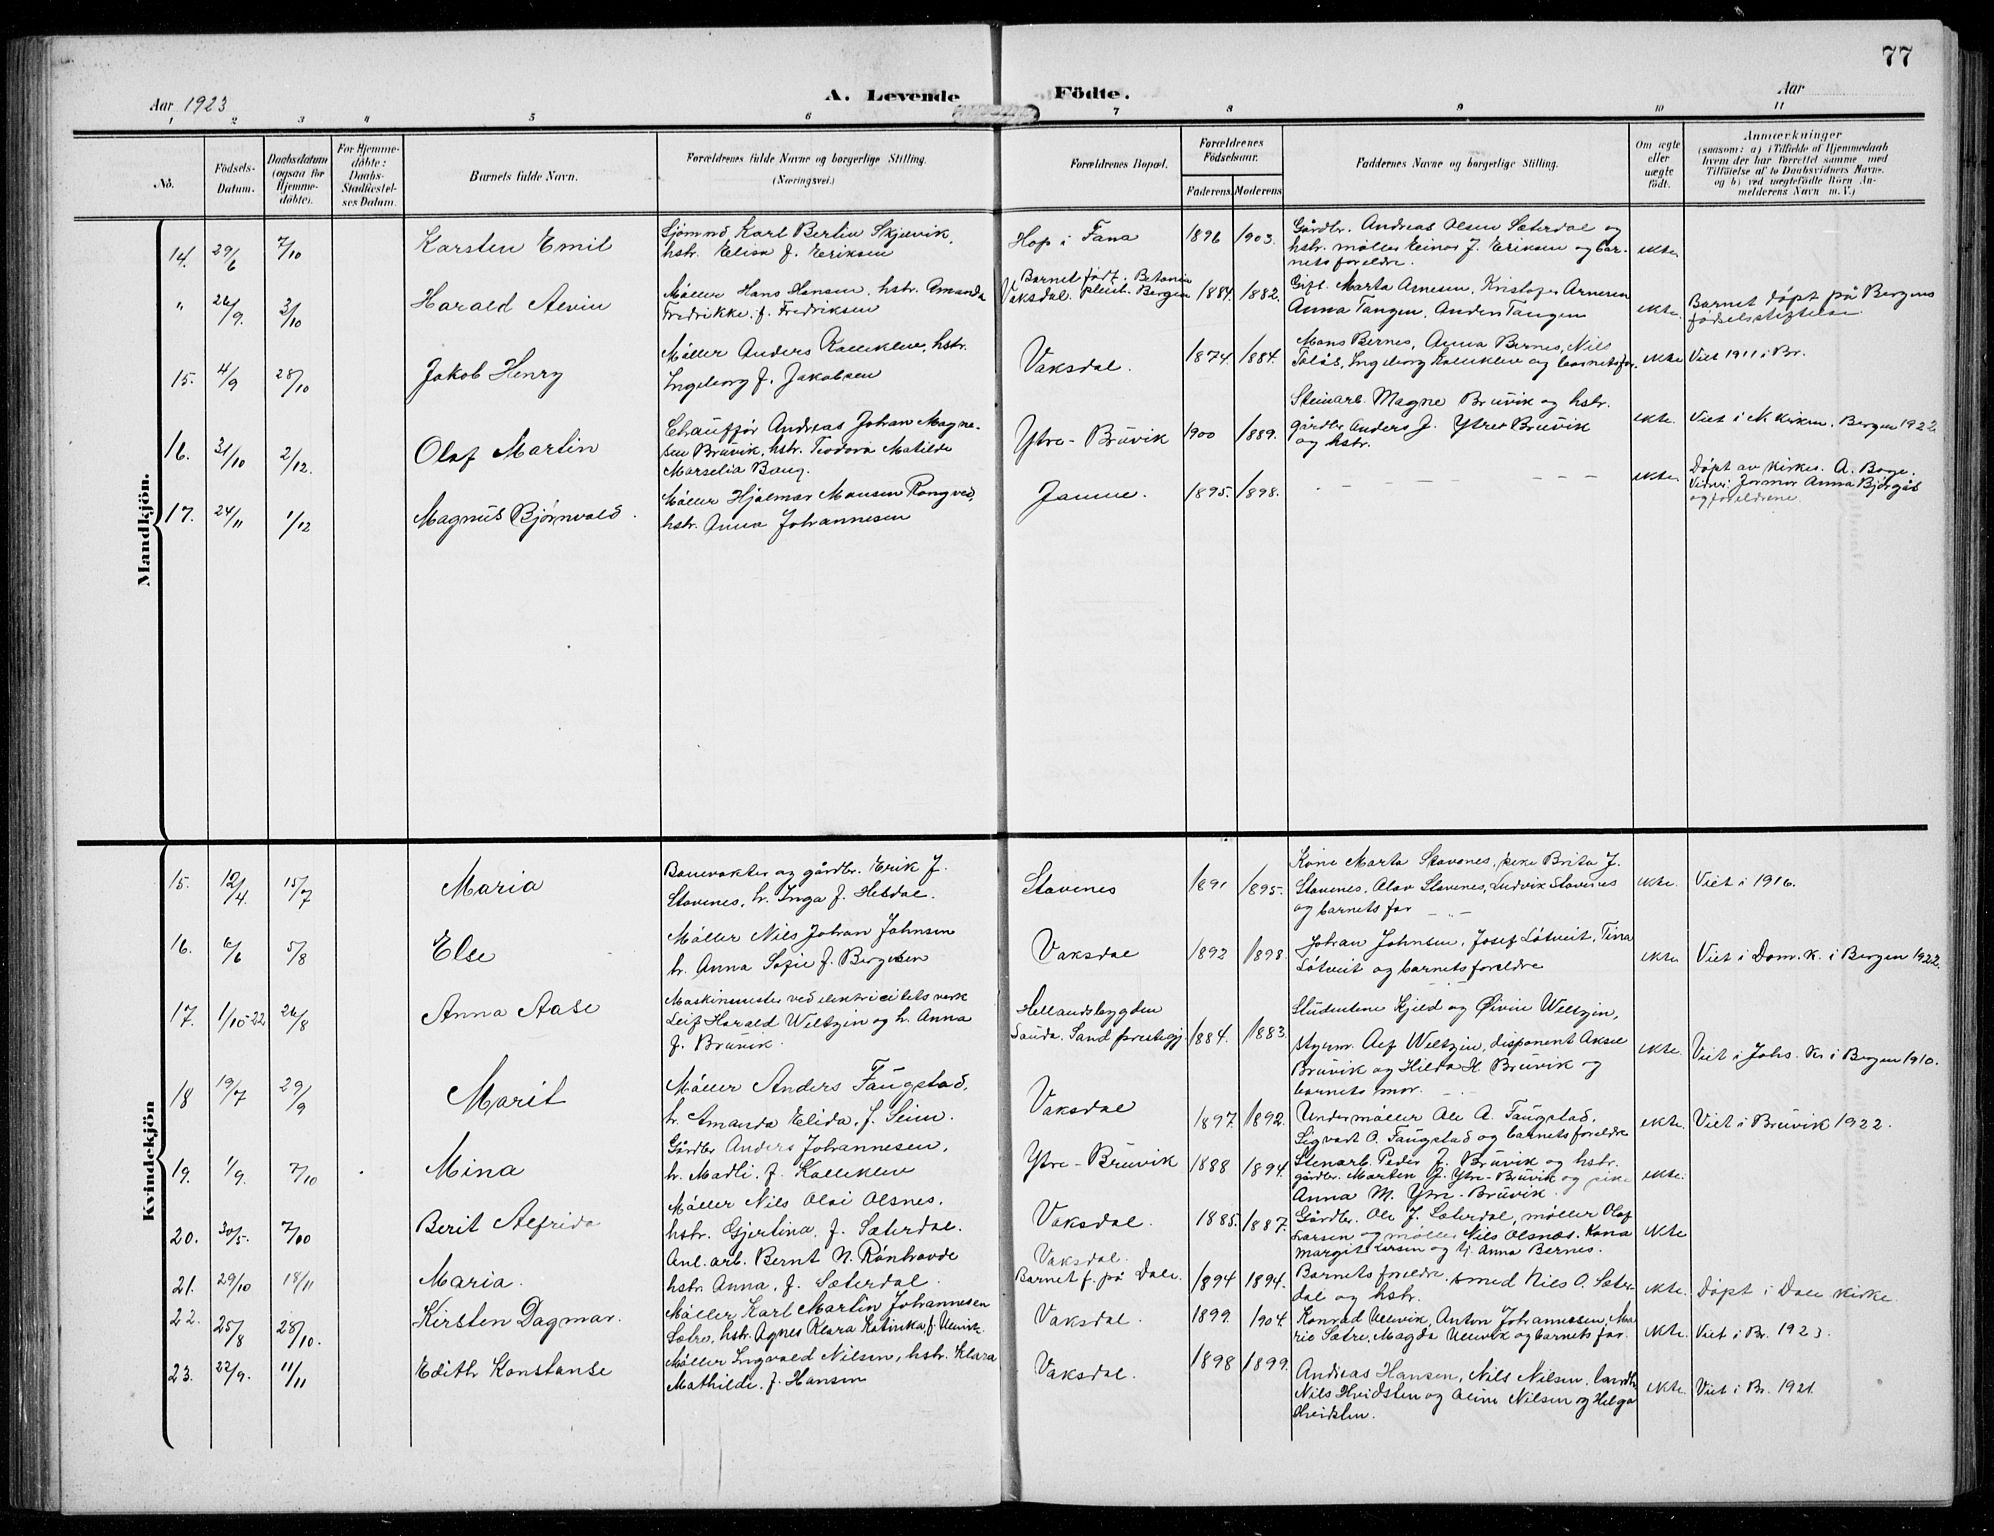 77
Aar 1923
A. Levende
Födte.
Aar
1 2 3 4 5 6 7 8 9 10 11
No.
Födsels-
Datum.
Daabsdatum
(ogsaa for
Hjemme-
döbte).
For Hjemme-
döbte:
Daabs-
Stadfæstel-
ses Datum.
Barnets fulde Navn.
Forældrenes fulde Navne og borgerlige Stilling.
(Næringsvei.)
Forældrenes Bopæl.
Forældrenes
Födselsaar.
Faderens. Moderens.
Faddernes Navne og borgerlige Stilling.
Om ægte
eller
uægte
födt.
Anmærkninger
(saasom: a) i Tilfælde af Hjemmedaab
hvem der har forrettet samme med
Tilföielse af to Daabsvidners Navne.
og b) ved uægtefödte Börn An-
melderens Navn m. V.)
Mandkjön.
14. 29/6 7/10 Karsten Emil
Sjömnd. Karl Bertin Skjelvik,
hstr. Elisa f. Eriksen
Hop i Fana 1896 1903.
Gårdbr. Andreas Olsen Sæterdal og
hstr. møller Einar J. Eriksen og bar-
nets foreldre.
ekte.
" 26/9. 3/10 Harald Alvin
Møller Hans Hansen, hstr. Amanda
Fredrikke, f. Fredriksen
Barnet født. Betania
Vaksdal. pleiel. Bergen 1884. 1882.
Gift. Marta Arnesen, Kristofer Arnesen
Anna Tangen, Anders Tangen
ekte.
Barnet døpt på Bergens
fødselsstiftelse
15. 4/9 28/10 Jakob Henry
Møller Anders Kalleklev, hstr.
Ingeborg f. Jakobsen
Vaksdal. 1874 1884.
Mons Bernes, Anna Bernes, Nils
Toløs, Ingeborg Kalleklev og barnets far.
ekte Viet 1911 i Br.
16. 31/10 2/12. Olaf Martin
Chauffør Andreas Johan Magne-
sen Bruvik, hstr. Teodora Matilde
Marselia Baug.
Ytre-Bruvik 1900 1889.
Steinarb. Magne Bruvik og hstr.
gårdbr. Anders J. Ytre Bruvik
og hstr.
ekte Viet i N. kirken. Bergen 1922.
17. 24/11 1/12 Magnus Bjørnvald.
Møller Hjalmar Monsen Rongved,
hstr. Anna Johannesen
Jamne. 1895. 1898. - - - - -
ekte.
Døpt av kirkes. A. Boge.
Vidner: Jormor Anna Bjørgås
og foreldrene.
Kvindekjön
15. 12/4. 15/7 Maria
Banevokter og gårdbr. Erik J.
Stavenes, h. Inga f. Hesdal.
Stavenes 1891 1895.
Kone Marta Stavenes, pike Brita J.
Stavenes, Olav Stavenes, Ludvik Stavenes
og barnets far
ekte. Viet i 1916.
16. 6/6 5/8 Else
Møller Nils Johan Johnsen
h. Anna Sofie f. Bergesen
Vaksdal 1892 1898
Johan Johnsen, Josef Løtveit, Tina
Løtveit og barnets foreldre
ekte. Viet i Dom. k. i Bergen 1922.
17. 1/10-22 26/8 Anna Aase
Maskinmester ved elektricitetsverk
Leif Harald Weltzin og h. Anna
f. Bruvik.
Hellandsbygden
Sauda. Sand prestegj. 1884. 1883.
Studentene Kjeld og Øivin Weltzin,
styrm. Alf Weltzin, disponent Aksel
Bruvik og Hilda H. Bruvik og
barnets mor.
ekte. Viet i Johs. K. i Bergen 1910.
18 19/7 29/9 Marit
Møller Anders Faugstad,
h. Amanda Elida, f. Seim.
Vaksdal 1897. 1892.
Undermøller Ole A. Faugstad,
Sigvart O. Faugstad og barnets foreldre
ekte. Viet i Bruvik 1922.
19. 1/9. 7/10 Mina
Gårdbr Anders Johannesen,
h. Madli. f. Kalleklev
Ytre-Bruvik 1888 1894
Stenarb. Peder J. Bruvik og hstr.
gårdbr. Marten J. Ytre-Bruvik og pike
Anna M. Ytre-Bruvik.
ekte.
20. 30/5. 7/10 Berit Alfrida
Møller Nils Olai Olsnes,
hstr. Gjertina, f. Sæterdal.
Vaksdal. 1885. 1887.
Gårdbr. Ole J. Sæterdal, møller Olaf
Larsen og møller Nils Olsnes. Kona
Margit Larsen og tj. Anna Bernes.
ekte
21. 29/10 18/11 Maria.
Anl. arb. Bernt N. Rönhovde
hstr. Anna, f. Sæterdal.
Vaksdal.
Barnet f. på Dale. 1894 1894.
Barnets foreldre, smed Nils O. Sæter-
dal og hstr.
ekte. Døpt i Dale kirke.
22. 25/8 28/10. Kirsten Dagmar.
Møller Karl Martin Johannesen
Sætre, hstr. Agnes Klara Katinka f. Ulvik.
Vaksdal. 1899. 1904.
Konrad Ulevik, Anton Johannesen, Ma-
rie Sætre, Magda Ulevik og barnets far.
ekte. Viet i Br. 1923.
23. 22/9. 11/11 Edith Konstanse
Møller Ingvald Nilsen, hstr. Klara
Mathilde, f. Hansen
Vaksdal. 1898 1899.
Andreas Hansen, Nils Nilsen,
Nils Hvidsten og Aline Nilsen og Helga
Hvidsten.
ekte. Viet i Br. 1921.